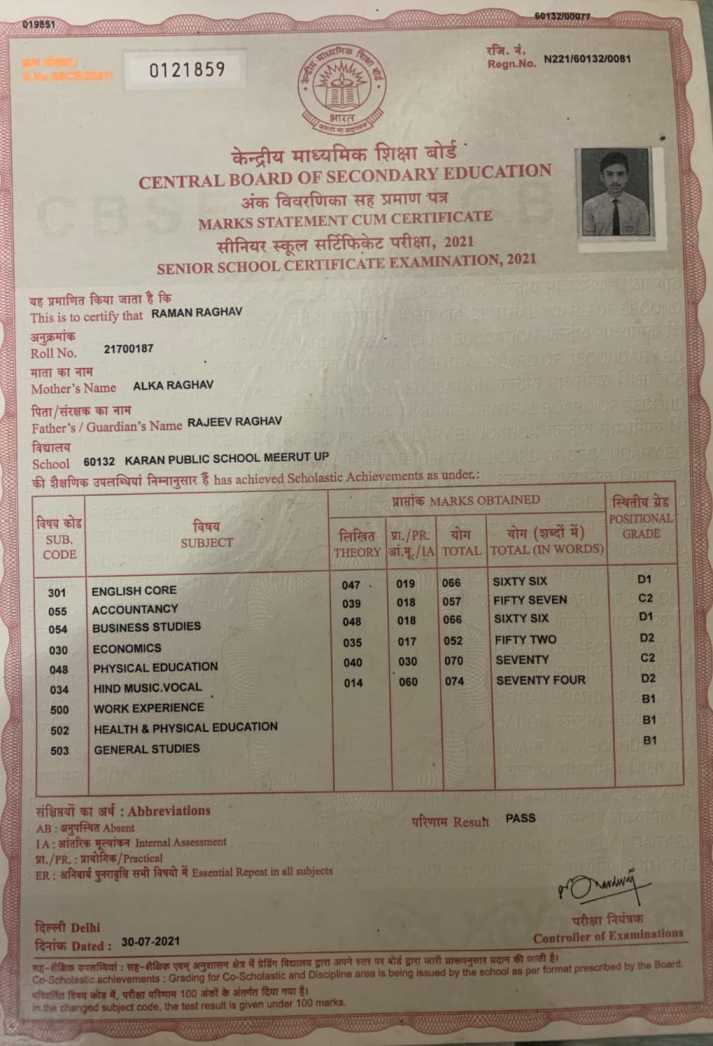 019851
60132/00077
0121859
रजि. नं.
Regn.No. N221/60132/0081
केन्द्रीय माध्यमिक शिक्षा बोर्ड
भारत
केन्द्रीय माध्यमिक शिक्षा बोर्ड
CENTRAL BOARD OF SECONDARY EDUCATION
अंक विवरणिका सह प्रमाण पत्र
MARKS STATEMENT CUM CERTIFICATE
सीनियर स्कूल सर्टिफिकेट परीक्षा, 2021
SENIOR SCHOOL CERTIFICATE EXAMINATION, 2021
यह प्रमाणित किया जाता है कि
This is to certify that RAMAN RAGHAV
अनुक्रमांक
Roll No. 21700187
माता का नाम
Mother's Name ALKA RAGHAV
पिता/संरक्षक का नाम
Father's / Guardian's Name RAJEEV RAGHAV
विद्यालय
School 60132 KARAN PUBLIC SCHOOL MEERUT UP
की शैक्षणिक उपलब्धियां निम्नानुसार हैं has achieved Scholastic Achievements as under.:
विषय कोड SUB. CODE
विषय SUBJECT
प्राप्तांक MARKS OBTAINED
लिखित THEORY
प्रा./PR. आं.मू./IA
योग TOTAL
योग (शब्दों में) TOTAL (IN WORDS)
स्थितीय ग्रेड POSITIONAL GRADE
301 ENGLISH CORE 047 019 066 SIXTY SIX D1
055 ACCOUNTANCY 039 018 057 FIFTY SEVEN C2
054 BUSINESS STUDIES 048 018 066 SIXTY SIX D1
030 ECONOMICS 035 017 052 FIFTY TWO D2
048 PHYSICAL EDUCATION 040 030 070 SEVENTY C2
034 HIND MUSIC.VOCAL 014 060 074 SEVENTY FOUR D2
500 WORK EXPERIENCE B1
502 HEALTH & PHYSICAL EDUCATION B1
503 GENERAL STUDIES B1
संक्षिप्तियों का अर्थ : Abbreviations
AB : अनुपस्थित Absent
IA : आंतरिक मूल्यांकन Internal Assessment
प्रा./PR. : प्रायोगिक/Practical
ER : अनिवार्य पुनरावृत्ति सभी विषयो में Essential Repeat in all subjects
परिणाम Result PASS
दिल्ली Delhi
दिनांक Dated : 30-07-2021
परीक्षा नियंत्रक
Controller of Examinations
सह-शैक्षिक उपलब्धियां : सह-शैक्षिक एवम् अनुशासन क्षेत्र में ग्रेडिंग विद्यालय द्वारा अपने स्तर पर बोर्ड द्वारा जारी प्रारूपनुसार प्रदान की जाती है।
Co-Scholastic achievements : Grading for Co-Scholastic and Discipline area is being issued by the school as per format prescribed by the Board.
परिवर्तित विषय कोड में, परीक्षा परिणाम 100 अंकों के अंतर्गत दिया गया है।
In the changed subject code, the test result is given under 100 marks.